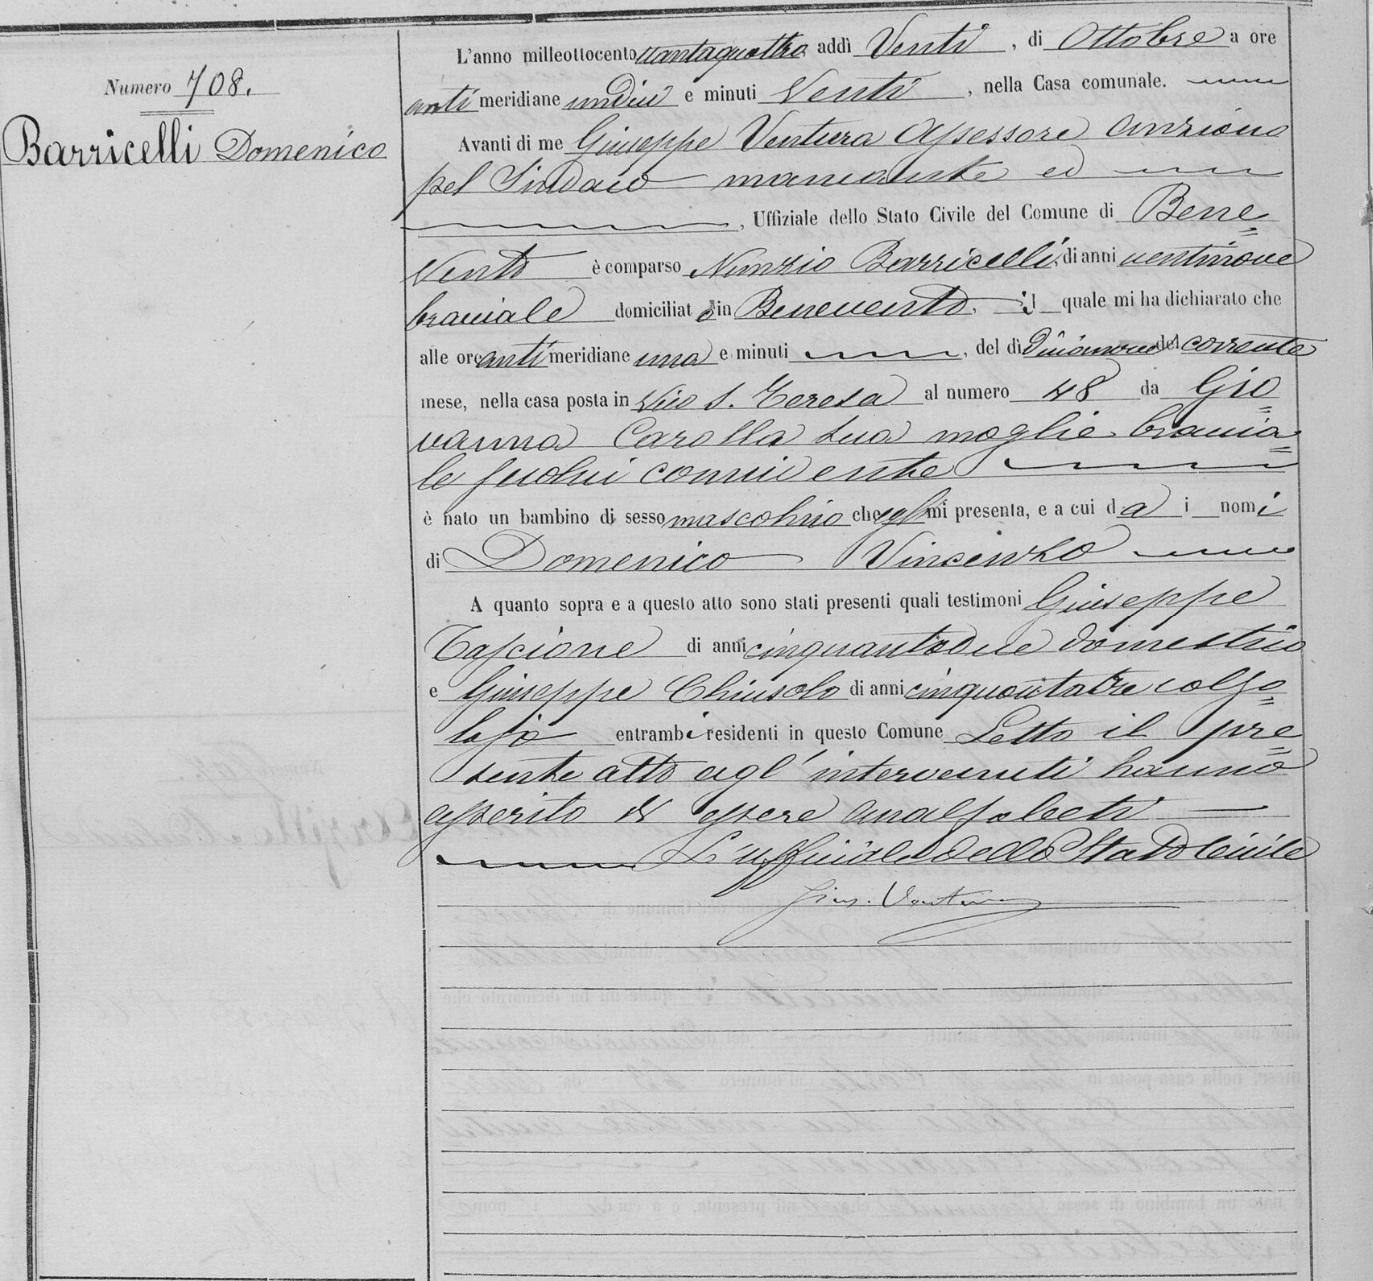 Numero 708.
Barricelli Domenico
L'anno milleottocento ottantaquattro, addì Venti, di Ottobre a ore
anti meridiane undici e minuti Venti, nella Casa comunale.
Avanti di me Giuseppe Ventura Assessore Anziano
pel Sindaco mancante ed
, Uffiziale dello Stato Civile del Comune di Bene=
vento è comparso Nunzio Barricelli, di anni ventinove
bracciale domiciliato in Benevento, il quale mi ha dichiarato che
alle ore anti meridiane una e minuti, del dì diciannove del corrente
mese, nella casa posta in Vico S. Teresa al numero 48 da Gio=
vanna Carolla sua moglie braccia=
le seco lui convivente
è nato un bambino di sesso mascolino che egli mi presenta, e a cui dà i nomi
di Domenico Vincenzo
A quanto sopra e a questo atto sono stati presenti quali testimoni Giuseppe
Tascione di anni cinquantadue domestico
e Giuseppe Chiusolo di anni cinquantatre calzo=
lajo entrambi residenti in questo Comune Letto il pre=
sente atto agl'intervenuti hanno
asserito di essere analfabeti
L'uffiziale dello Stato Civile
Gius. Ventura